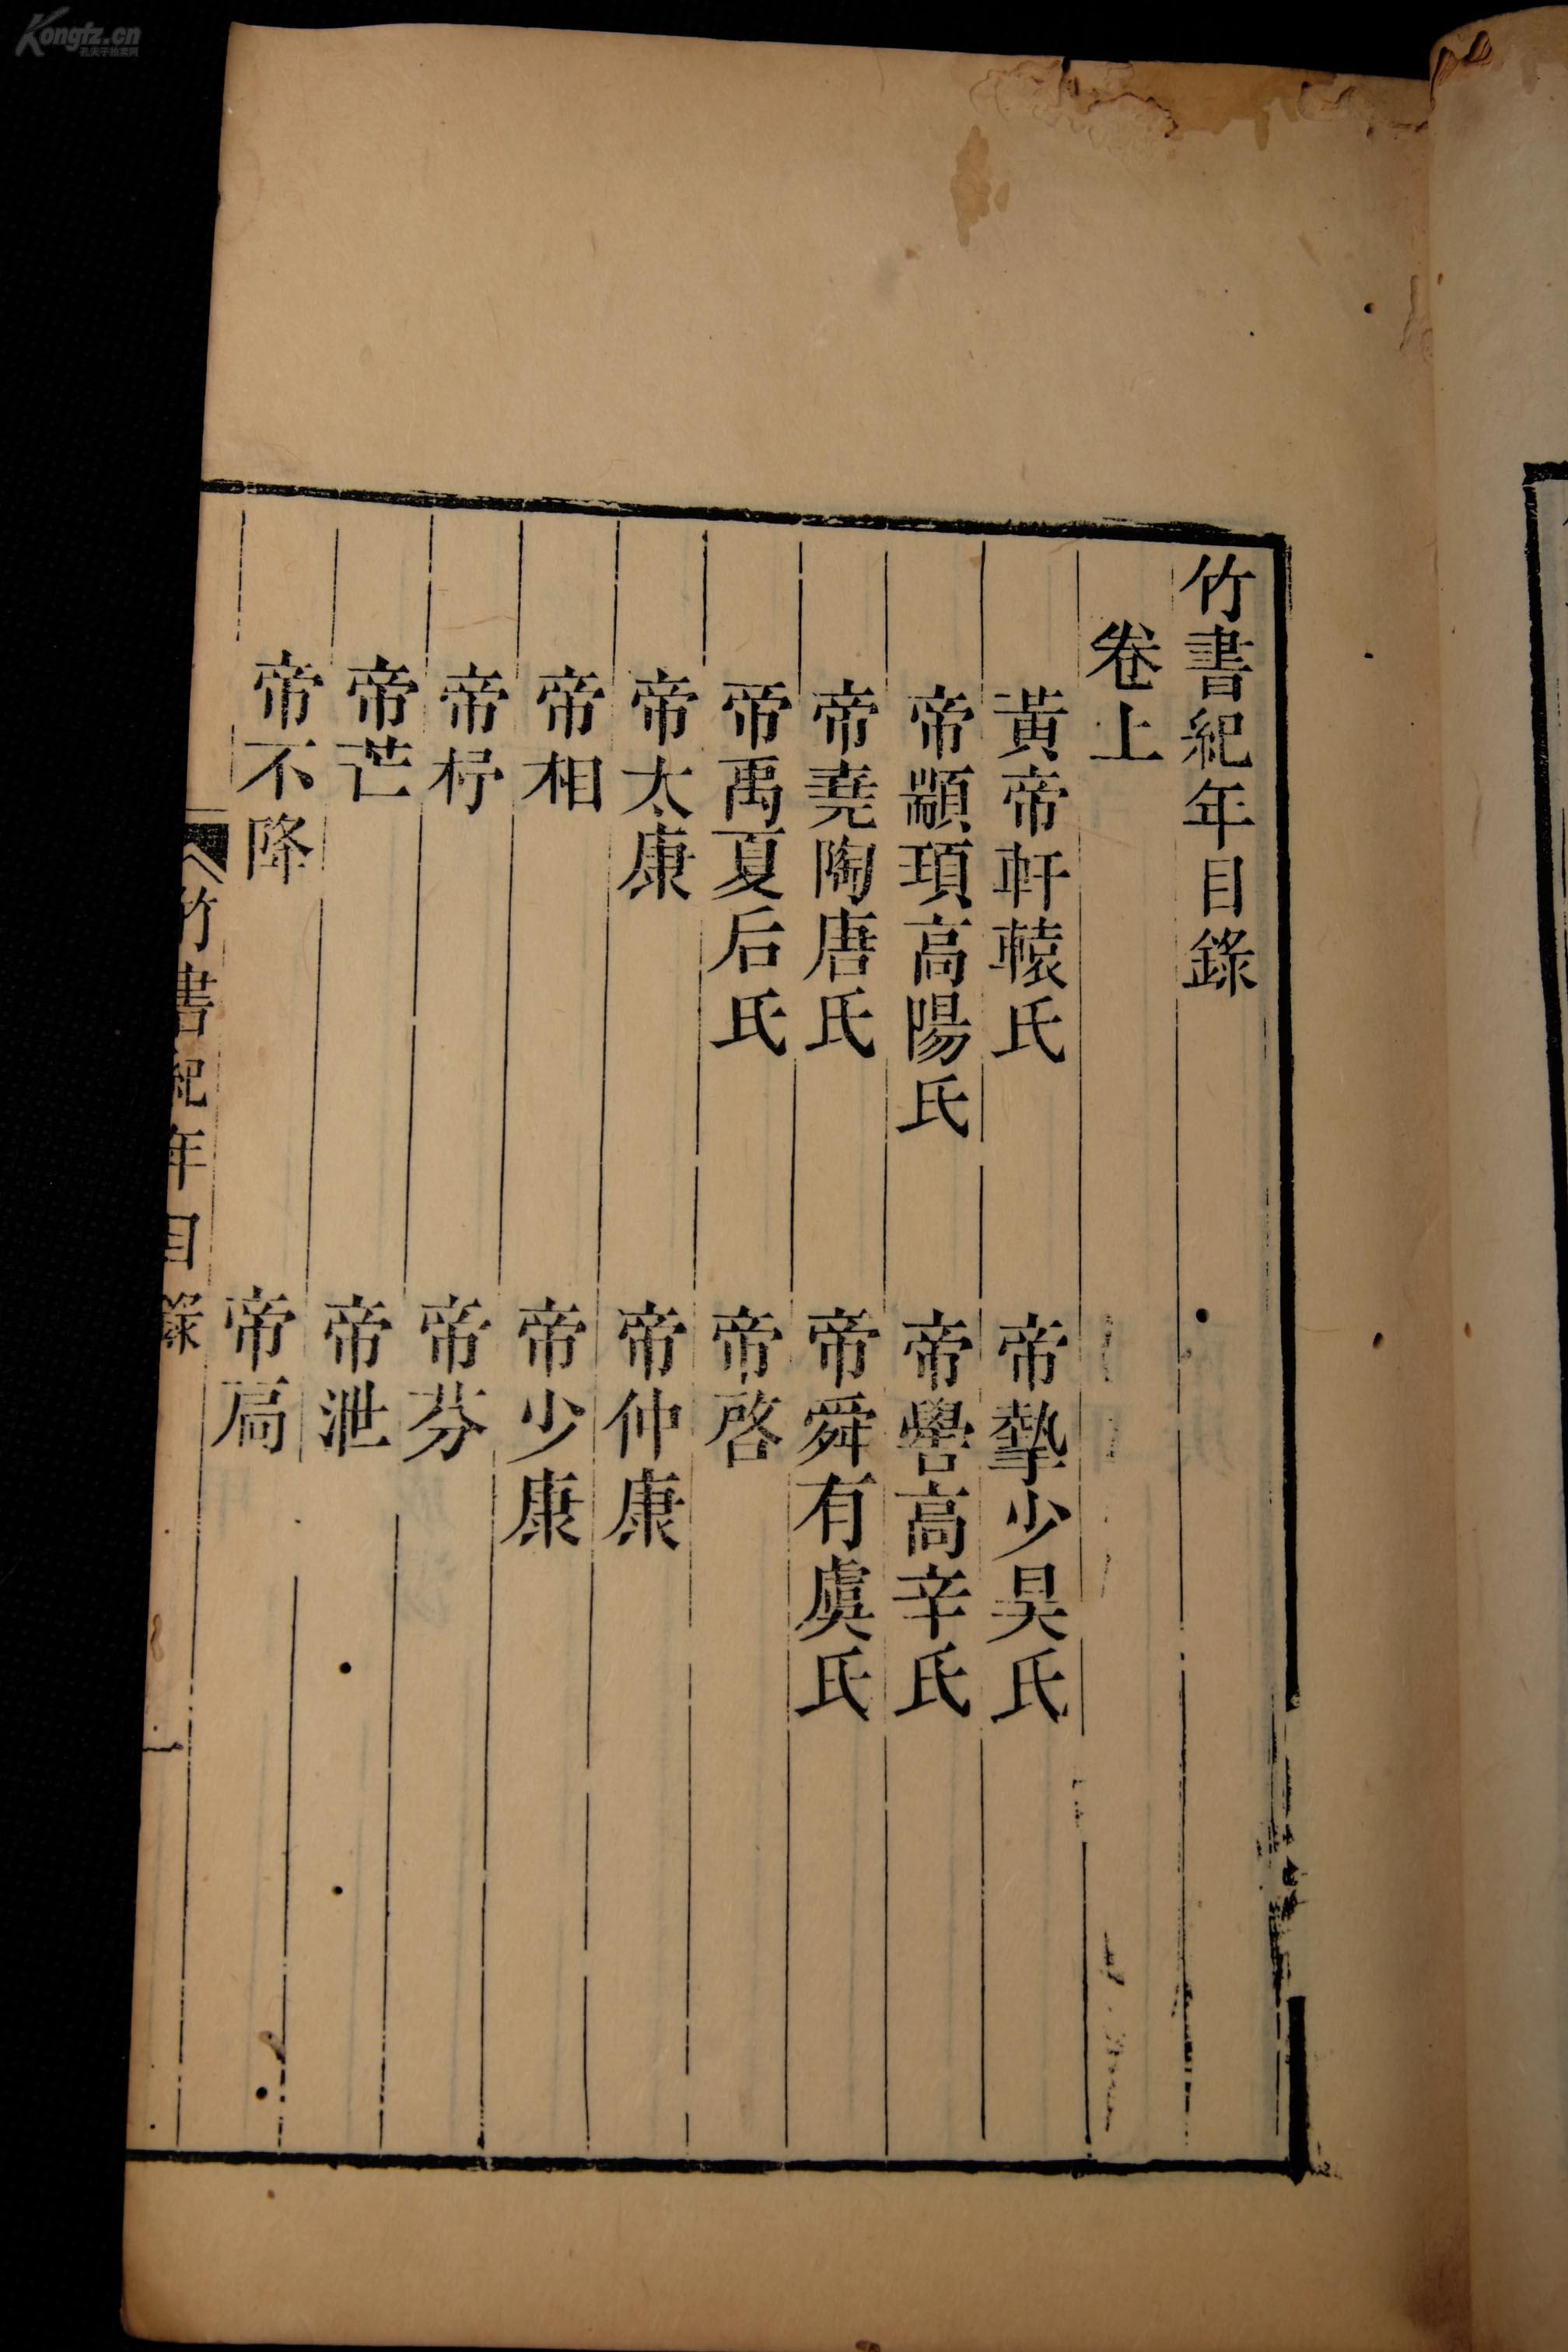 竹書紀年目錄
卷上
黃帝軒轅氏
帝摯少昊氏
帝顓頊高陽氏
帝嚳高辛氏
帝堯陶唐氏
帝舜有虞氏
帝禹夏后氏
帝啓
帝太康
帝仲康
帝相
帝少康
帝杼
帝芬
帝芒
帝泄
帝不降
帝扃
竹書紀年目錄
一
Kongfz.cn
孔夫子拍卖网